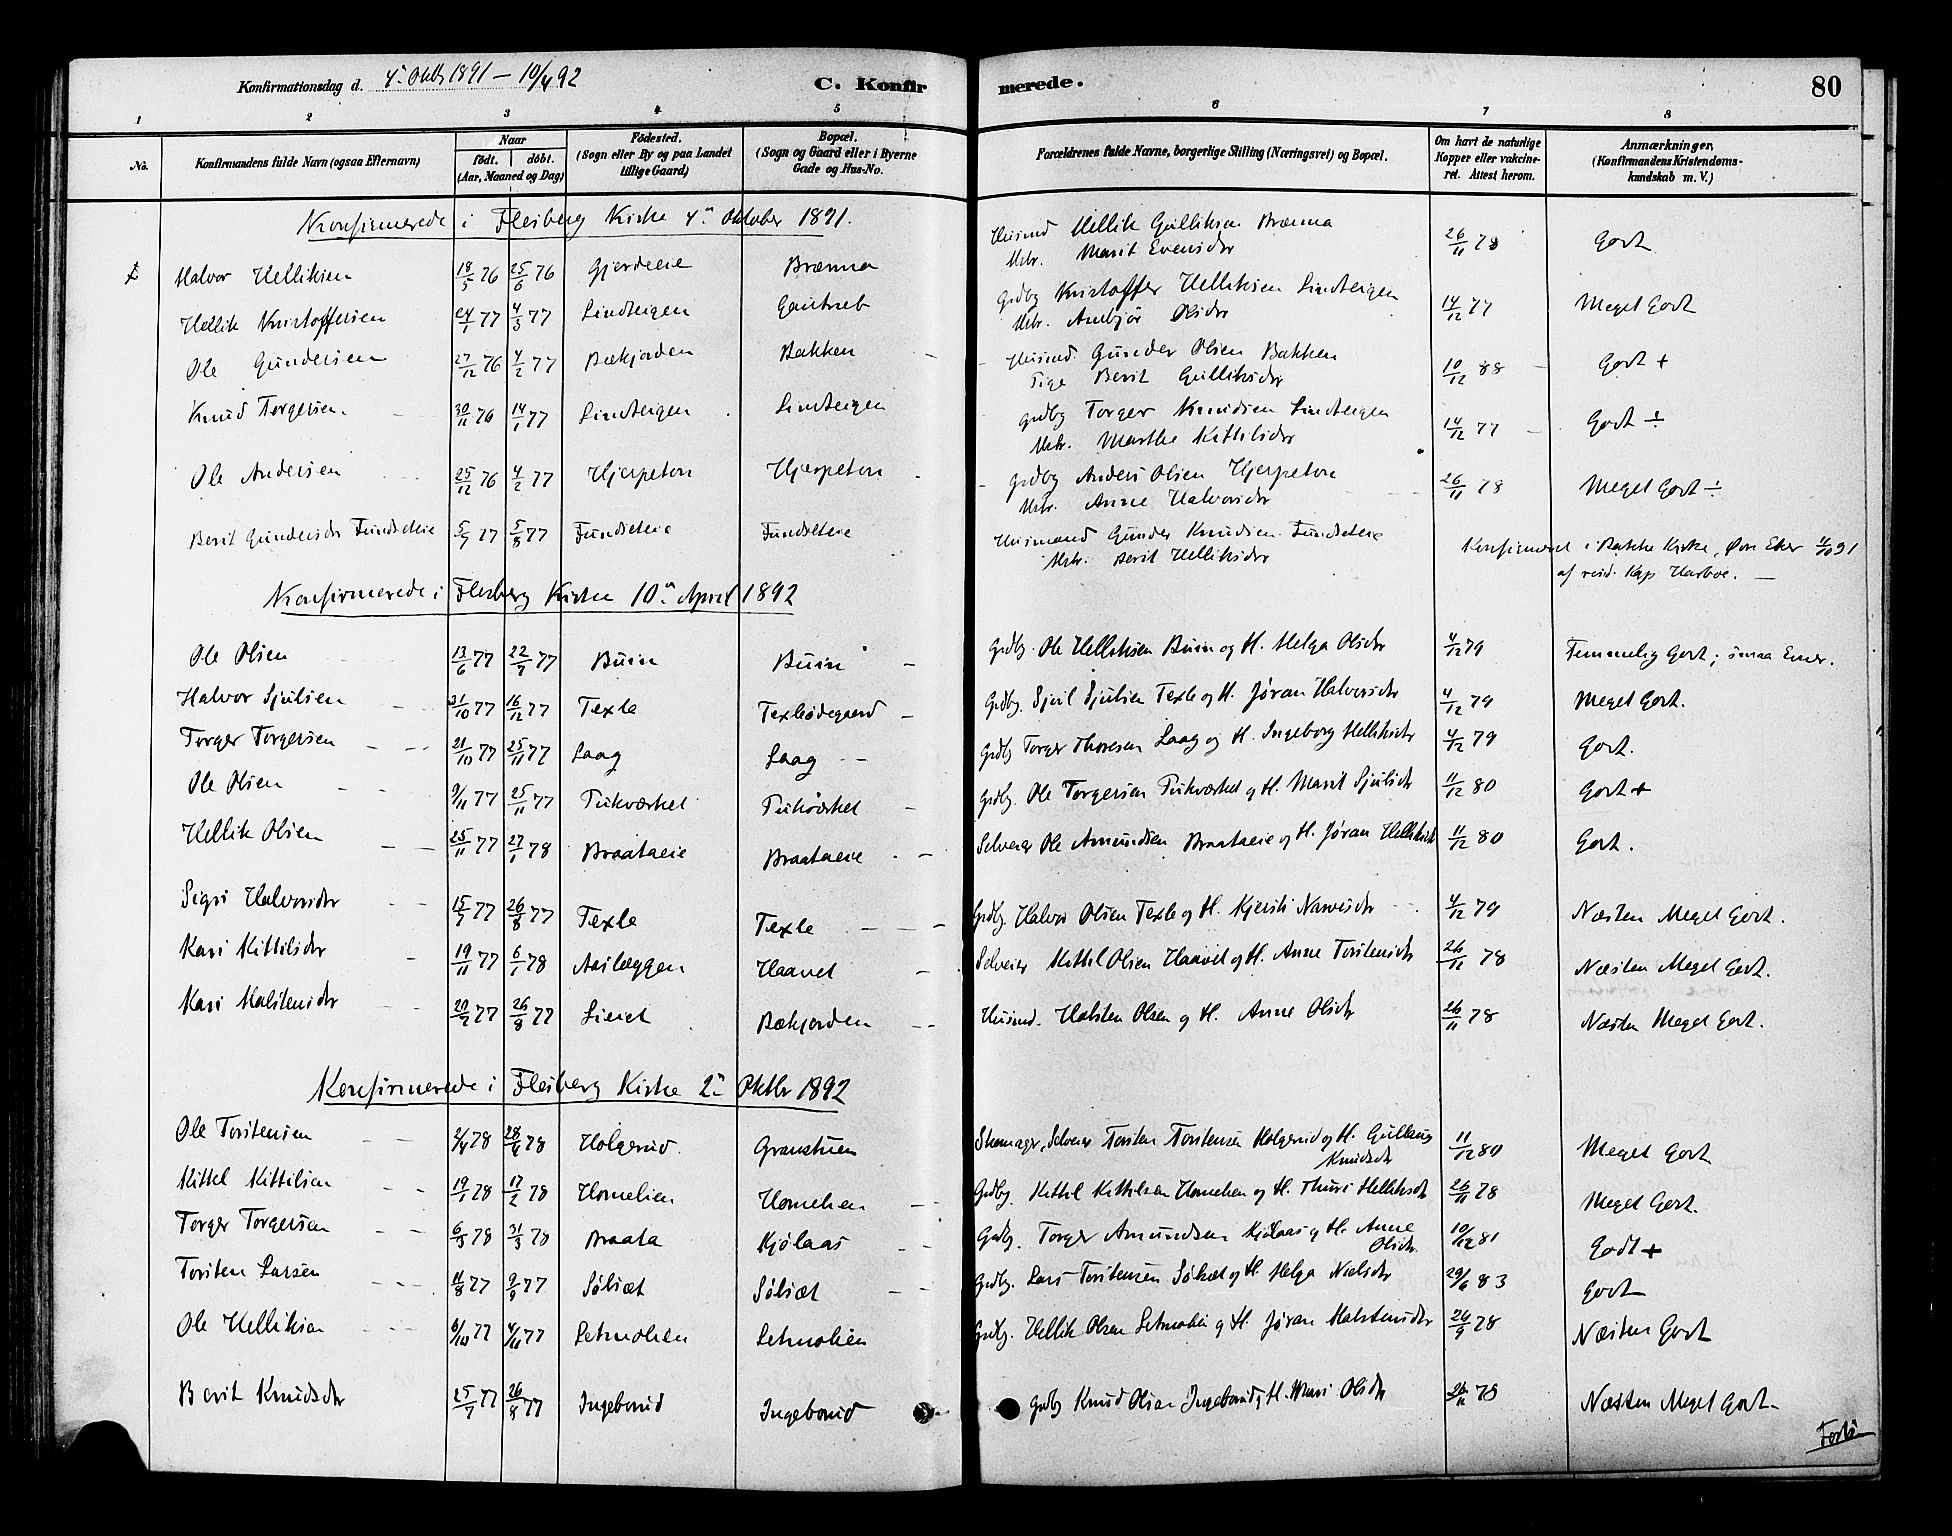 Konfirmationsdag d. 4de Oktb 1891 – 10/4 92
C. Konfirmerede.
80
1 2 3 4 5 6 7 8
No. Konfirmandens fulde Navn (ogsaa Efternavn) Naar født. døbt. (Aar, Maaned og Dag) Fødested. (Sogn eller By og paa Landet tillige Gaard) Bopæl. (Sogn og Gaard eller i Byerne Gade og Hus-No. Forældrenes fulde Navne, borgerlige Stilling (Næringsvei) og Bopæl. Om havt de naturlige Kopper eller vakcineret. Attest herom. Anmærkninger, (Konfirmandens Kristendomskundskab m. V.)
Konfirmerede i Flesberg Kirke 4de Oktober 1891.
Halvor Helliksen 18/5 76 25/6 76 Gjerdeeie Brænna Husmd Hellik Gulliksen Brænna Hstr. Marit Evensdr 26/11 78 Godt
Hellik Kristoffersen 24/1 77 4/3 77 Lindteigen Gaardbg Kristoffer Helliksen Lindteigen Hstr. Ambjør Olsdr 14/12 77 Meget Godt
Ole Gundersen 27/12 76 4/2 77 Bækjorden Bakken Husmd. Gunder Olsen Bakken Pige Berit Gulliksdr 10/12 88 Godt +
Knud Torgersen 30/11 76 14/1 77 Lindteigen Lindteigen Grdbg Torger Knudsen Lindteigen Hstr. Marthe Kittilsdr 14/12 77 Godt ÷
Ole Andersen 25/12 76 4/2 77 Hjerpeton Hjerpeton Grdbg Anders Olsen Hjerpeton Hstr. Anne Halvorsdr 26/11 78 Meget Godt ÷
Berit Gundersdr Fundseteie 5/7 77 5/8 77 Fundseteie Fundseteie Husmand Gunder Knudsen Fundseteie Hstr. Berit Helliksdr Konfirmeret i Bakke Kirke, Øvre Eker 11/10 91
af resid. Kap Harboe.
Konfirmerede i Flesberg Kirke 10de April 1892
Ole Olsen 13/6 77 22/7 77 Buin Buin Grdbg. Ole Helliksen Buin og H. Helga Olsdr 4/12 79 Temmelig Godt; smaa Evner.
Halvor Sjulsen 31/10 77 16/12 77 Texle Texleødegaard Grdbg. Sjul Sjulsen Texle og H. Jøran Halvorsdr 4/12 79 Meget Godt.
Torger Torgersen 21/10 77 25/11 77 Laag Laag Grdbg Torger Thoresen Laag og H. Ingeborg Helliksdr 4/12 79 Godt.
Ole Olsen 9/11 77 25/11 77 Tukværket Tukværket Grdbg. Ole Torgersen Tukværket og H. Marit Sjulsdr 11/12 80 Godt +
Hellik Olsen 25/11 77 27/1 78 Braataeie Braataeie Selveier Ole Amundsen Braataeie og H. Jøran Helliksdr 11/12 80 Godt.
Sigri Halvorsdr 15/7 77 26/8 77 Texle Texle Grdbg. Halvor Olsen Texle og H. Kjersti Narvesdr 4/12 79 Næsten Meget Godt.
Kari Kittilsdr 19/11 77 6/1 78 Aaslæggen Haavet Selveier Kittil Olsen Haavet og H. Anne Torstensdr 26/11 78 Næsten Meget Godt.
Kari Halstensdr 20/7 77 26/8 77 Lieiet Bækjorden Husmd. Halsten Olsen og H. Anne Olsdr 26/11 78 Næsten Meget Godt.
Konfirmerede i Flesberg Kirke 2de Oktbr 1892
Ole Torstensen 2/4 78 28/4 78 Holgerud Granstuen Skomager, Selveier Torsten Torstensen Holgerud og H. Gullaug Knudsdr 11/12 80 Meget Godt
Kittil Kittilsen 19/1 78 17/2 78 Homelien Homelien Grdbg. Kittil Kittilsen Homelien og H. Thuri Helliksdr 26/11 78 Meget Godt.
Torger Torgersen 6/3 78 31/3 78 Braata Kjølaas Grdbg. Torger Amundsen Kjølaas og H. Anne Olsdr. 10/12 81 Godt +
Torsten Larsen 11/8 77 9/9 77 Sølsæt Sølsæt Grdbg. Lars Torstensen Sølsæt og H. Helga Nielsdr 29/6 83 Godt
Ole Helliksen 6/10 77 4/11 77 Letmolien Letmolien Grdbg. Hellik Olsen Letmolien og H. Jøran Halstensdr 26/9 78 Næsten Godt
Berit Knudsdr 25/7 77 26/8 77 Ingeborud Ingeborud Grdbg Knud Olsen Ingeborud og H. Mari Olsdr 26/11 78 Næsten Meget Godt.